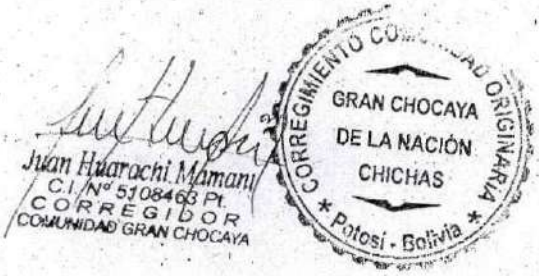 Juan Huarachi Mamani
C.I. Nº 5108463 Pt.
CORREGIDOR
COMUNIDAD GRAN CHOCAYA
CORREGIMIENTO COMUNIDAD ORIGINARIA
GRAN CHOCAYA
DE LA NACIÓN
CHICHAS
* Potosí - Bolivia *